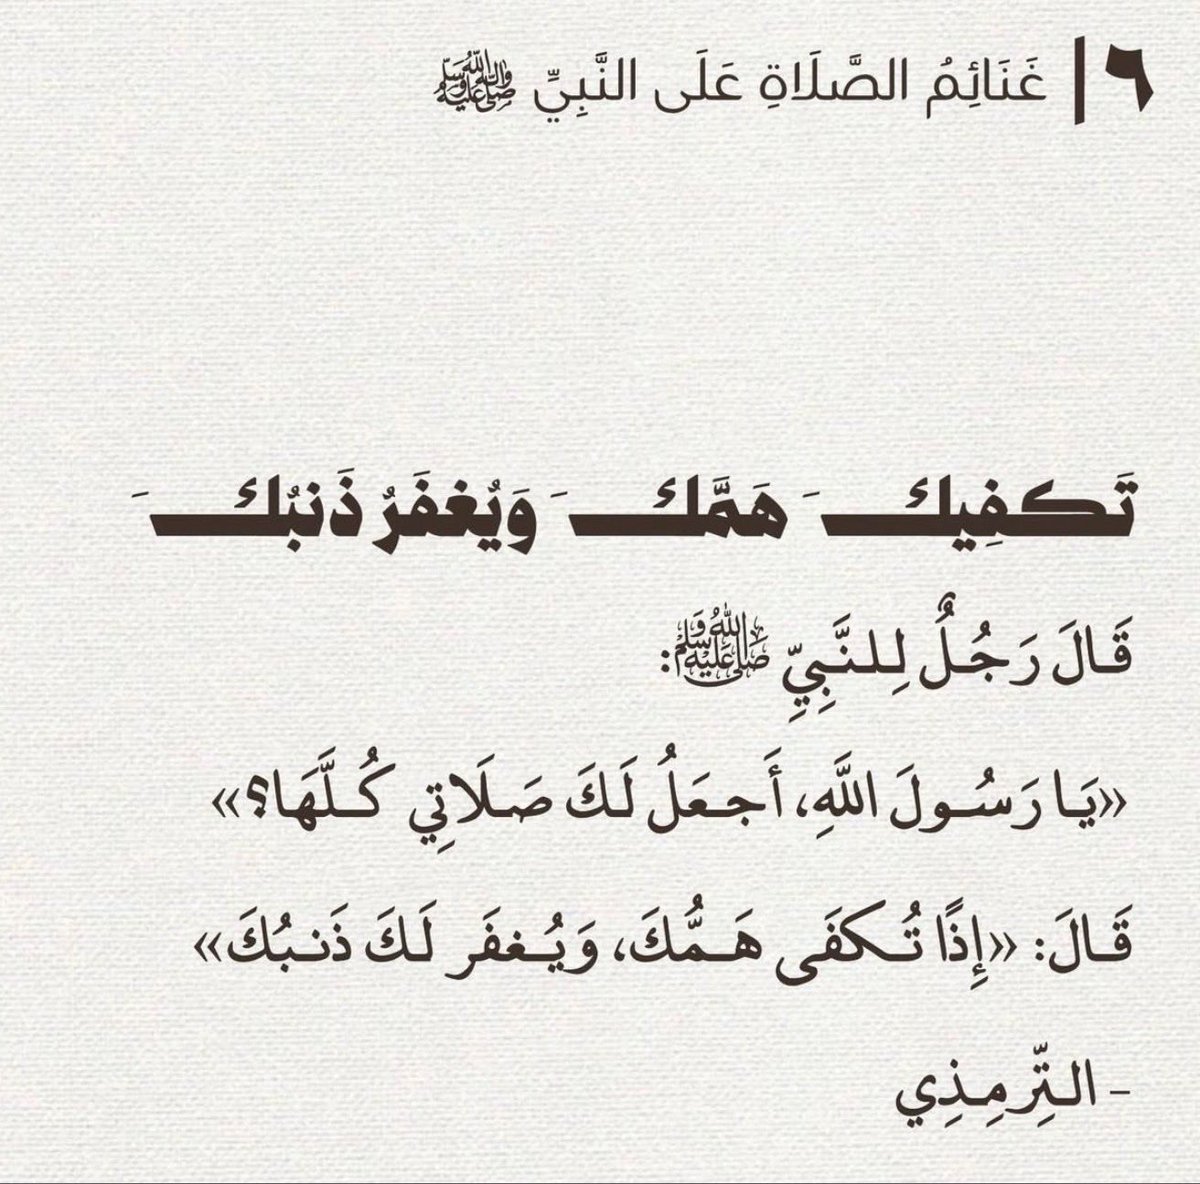 ٦ | غَنَائِمُ الصَّلَاةِ عَلَى النَّبِيِّ ﷺ
تَكفِيكَ هَمَّكَ وَيُغفَرُ ذَنبُكَ
قَالَ رَجُلٌ لِلنَّبِيِّ ﷺ:
«يَا رَسُولَ اللَّهِ، أَجعَلُ لَكَ صَلَاتِي كُلَّهَا؟»
قَالَ: «إِذًا تُكفَى هَمُّكَ، وَيُغفَر لَكَ ذَنبُكَ»
- التِّرمِذِي